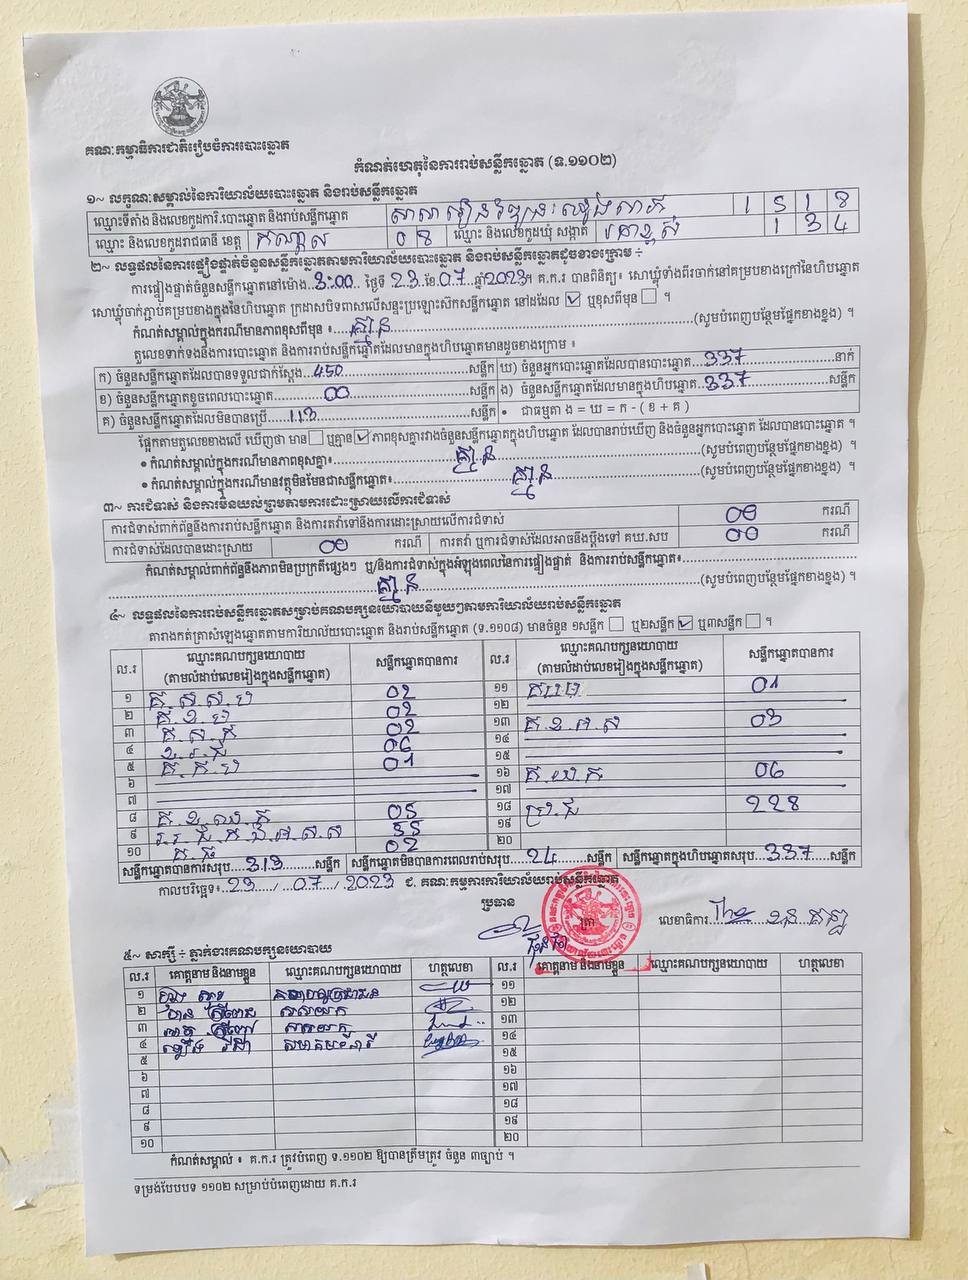 គណៈកម្មាធិការជាតិរៀបចំការបោះឆ្នោត
កំណត់ហេតុនៃការរាប់សន្លឹកឆ្នោត (ទ.១១០២)
១~ លក្ខណៈសម្គាល់នៃការិយាល័យបោះឆ្នោត និងរាប់សន្លឹកឆ្នោត
ឈ្មោះទីតាំង និងលេខកូដការិ.បោះឆ្នោត និងរាប់សន្លឹកឆ្នោត 1 5 1 8
ឈ្មោះ និងលេខកូដរាជធានី ខេត្ត កណ្តាល 0 8 ឈ្មោះ និងលេខកូដឃុំ សង្កាត់ 1 3 4
២~ លទ្ធផលនៃការផ្ទៀងផ្ទាត់ចំនួនសន្លឹកឆ្នោតតាមការិយាល័យបោះឆ្នោត និងរាប់សន្លឹកឆ្នោតដូចខាងក្រោម ÷
ការផ្ទៀងផ្ទាត់ចំនួនសន្លឹកឆ្នោតនៅម៉ោង 3:00 ថ្ងៃទី 23 ខែ 07 ឆ្នាំ 2023។ គ.ក.រ បានពិនិត្យ៖ សោឃ្លុំទាំងពីរចាក់នៅគម្របខាងក្រៅនៃហិបឆ្នោត
សោឃ្លុំចាក់ភ្ជាប់គម្របខាងក្នុងនៃហិបឆ្នោត ក្រដាសបិទពាសលើសន្ទះប្រឡោះស៊កសន្លឹកឆ្នោត នៅដដែល ☑ ឬខុសពីមុន ☐ ។
កំណត់សម្គាល់ក្នុងករណីមានភាពខុសពីមុន ៖ គ្មាន (សូមបំពេញបន្ថែមផ្នែកខាងខ្នង) ។
តួលេខទាក់ទងនឹងការបោះឆ្នោត និងការរាប់សន្លឹកឆ្នោតដែលមានក្នុងហិបឆ្នោតមានដូចខាងក្រោម ៖
ក) ចំនួនសន្លឹកឆ្នោតដែលបានទទួលជាក់ស្តែង 450 សន្លឹក ឃ) ចំនួនអ្នកបោះឆ្នោតដែលបានបោះឆ្នោត 337 នាក់
ខ) ចំនួនសន្លឹកឆ្នោតខូចពេលបោះឆ្នោត 00 សន្លឹក ង) ចំនួនសន្លឹកឆ្នោតដែលមានក្នុងហិបឆ្នោត 337 សន្លឹក
គ) ចំនួនសន្លឹកឆ្នោតដែលមិនបានប្រើ 113 សន្លឹក • ជាធម្មតា ង = ឃ = ក - ( ខ + គ )
ផ្អែកតាមតួលេខខាងលើ ឃើញថា មាន ☐ ឬគ្មាន ☑ ភាពខុសគ្នារវាងចំនួនសន្លឹកឆ្នោតក្នុងហិបឆ្នោត ដែលបានរាប់ឃើញ និងចំនួនអ្នកបោះឆ្នោត ដែលបានបោះឆ្នោត ។
• កំណត់សម្គាល់ក្នុងករណីមានភាពខុសគ្នា៖ គ្មាន (សូមបំពេញបន្ថែមផ្នែកខាងខ្នង) ។
• កំណត់សម្គាល់ក្នុងករណីមានវត្ថុមិនមែនជាសន្លឹកឆ្នោត៖ គ្មាន (សូមបំពេញបន្ថែមផ្នែកខាងខ្នង) ។
៣~ ការជំទាស់ និងការមិនយល់ព្រមតាមការដោះស្រាយលើការជំទាស់
ការជំទាស់ពាក់ព័ន្ធនឹងការរាប់សន្លឹកឆ្នោត និងការតវ៉ាទៅនឹងការដោះស្រាយលើការជំទាស់ 00 ករណី
ការជំទាស់ដែលបានដោះស្រាយ 00 ករណី ការតវ៉ា ឬការជំទាស់ដែលអាចនឹងប្តឹងទៅ គឃ.សប 00 ករណី
កំណត់សម្គាល់ពាក់ព័ន្ធនឹងភាពមិនប្រក្រតីផ្សេងៗ ឬ/និងការជំទាស់ក្នុងអំឡុងពេលនៃការផ្ទៀងផ្ទាត់ និងការរាប់សន្លឹកឆ្នោត៖
គ្មាន (សូមបំពេញបន្ថែមផ្នែកខាងខ្នង) ។
៤~ លទ្ធផលនៃការរាប់សន្លឹកឆ្នោតសម្រាប់គណបក្សនយោបាយនីមួយៗតាមការិយាល័យរាប់សន្លឹកឆ្នោត
តារាងកត់ត្រាសំឡេងឆ្នោតតាមការិយាល័យបោះឆ្នោត និងរាប់សន្លឹកឆ្នោត (ទ.១១០៨) មានចំនួន ១សន្លឹក ☐ ឬ២សន្លឹក ☑ ឬ៣សន្លឹក ☐ ។
ល.រ ឈ្មោះគណបក្សនយោបាយ (តាមលំដាប់លេខរៀងក្នុងសន្លឹកឆ្នោត) សន្លឹកឆ្នោតបានការ ល.រ ឈ្មោះគណបក្សនយោបាយ (តាមលំដាប់លេខរៀងក្នុងសន្លឹកឆ្នោត) សន្លឹកឆ្នោតបានការ
១ គ.ស.ស.ប 02 ១១ 01
២ គ.ខ.ប 02 ១២
៣ គ.ស.ក 02 ១៣ គ.ខ.អ.ស 03
៤ 06 ១៤
៥ គ.ក.ប 01 ១៥
៦ ១៦ គ.យ.ក 06
៧ ១៧
៨ 05 ១៨ ប្រ.ជ 228
៩ 55 ១៩
១០ គ.ធ 02 ២០
សន្លឹកឆ្នោតបានការសរុប 313 សន្លឹក សន្លឹកឆ្នោតមិនបានការពេលរាប់សរុប 24 សន្លឹក សន្លឹកឆ្នោតក្នុងហិបឆ្នោតសរុប 337 សន្លឹក
កាលបរិច្ឆេទ៖ 23 / 07 / 2023 ជ. គណៈកម្មការការិយាល័យរាប់សន្លឹកឆ្នោត
ប្រធាន ត្រា លេខាធិការ
៥~ សាក្សី ÷ ភ្នាក់ងារគណបក្សនយោបាយ
ល.រ គោត្តនាម និងនាមខ្លួន ឈ្មោះគណបក្សនយោបាយ ហត្ថលេខា ល.រ គោត្តនាម និងនាមខ្លួន ឈ្មោះគណបក្សនយោបាយ ហត្ថលេខា
១ ១១
២ ១២
៣ ១៣
៤ ១៤
៥ ១៥
៦ ១៦
៧ ១៧
៨ ១៨
៩ ១៩
១០ ២០
កំណត់សម្គាល់ ៖ គ.ក.រ ត្រូវបំពេញ ទ.១១០២ ឱ្យបានត្រឹមត្រូវ ចំនួន ៣ច្បាប់ ។
ទម្រង់បែបបទ ១១០២ សម្រាប់បំពេញដោយ គ.ក.រ